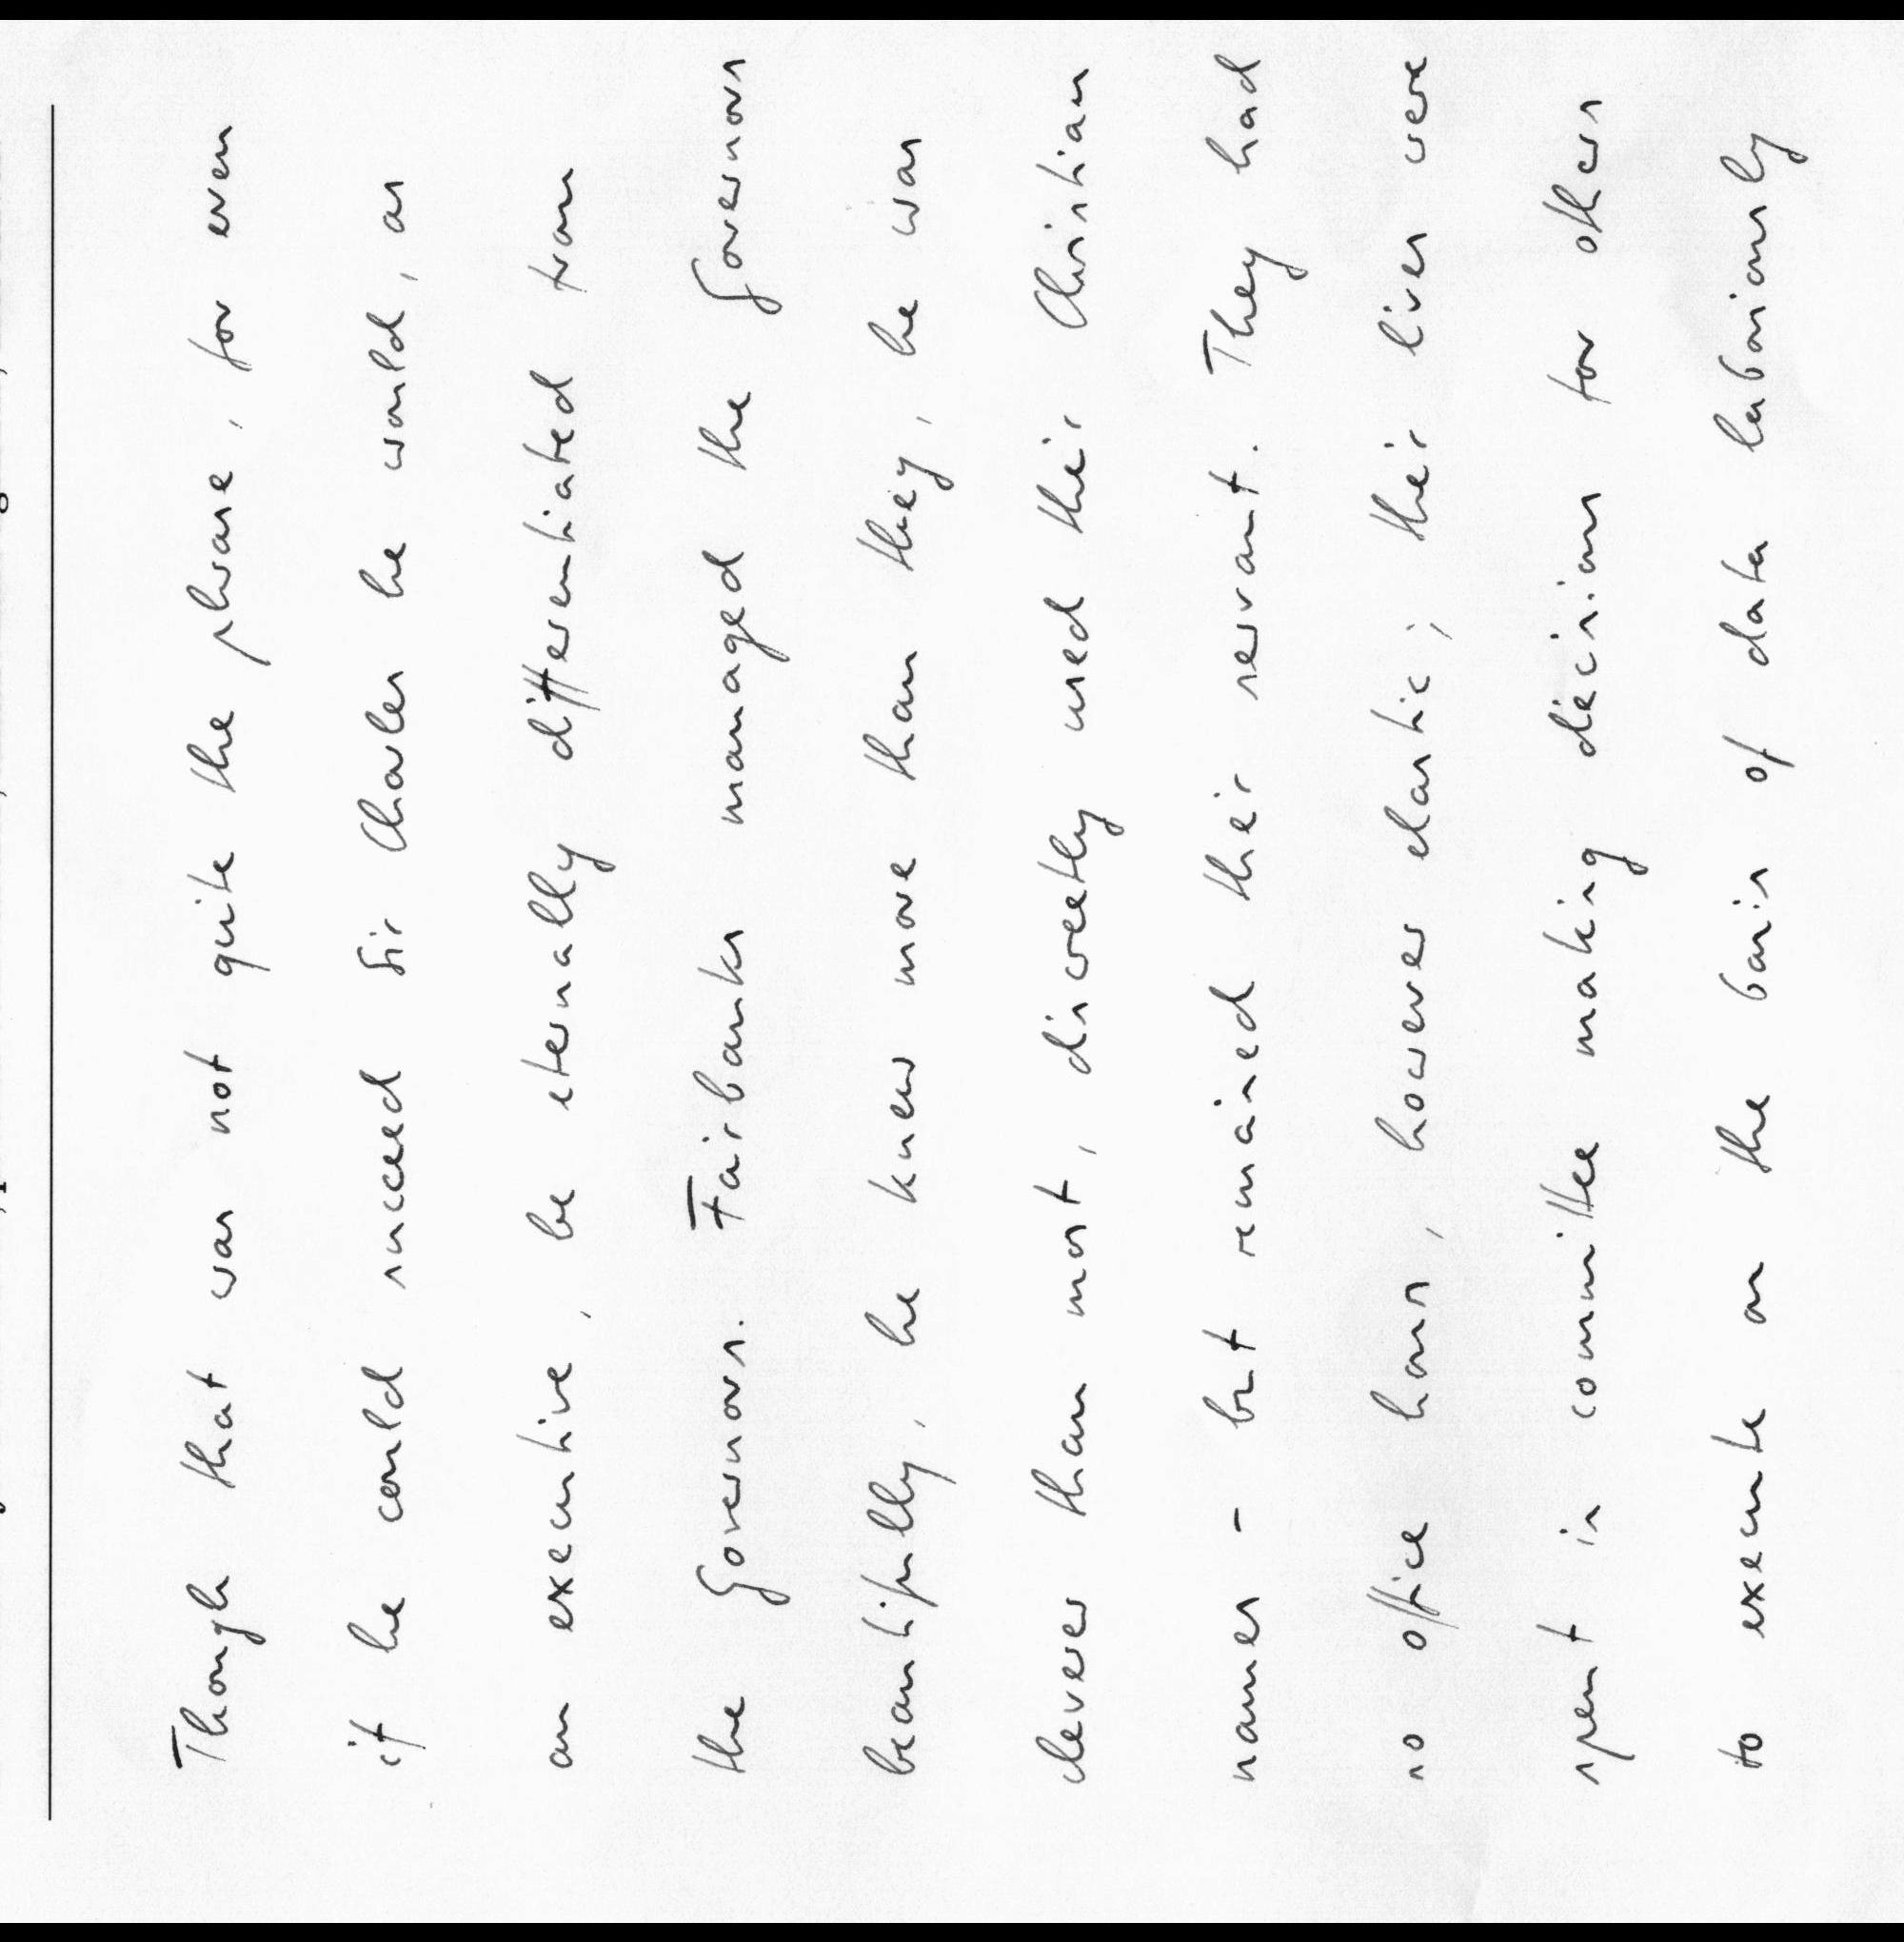 Though that was not quite the phrase, for even
if he could succeed Sir Charles he would, as
an executive, be eternally differentiated from
the Governors. Fairbanks managed the Governors
beautifully, he knew more than they, he was
clever than most, discreetly used their Christian
names - but remained their servant. They had
no office hours, however elastic; their lives were
spent in committee making decisions for others
to execute on the basis of data laboriously